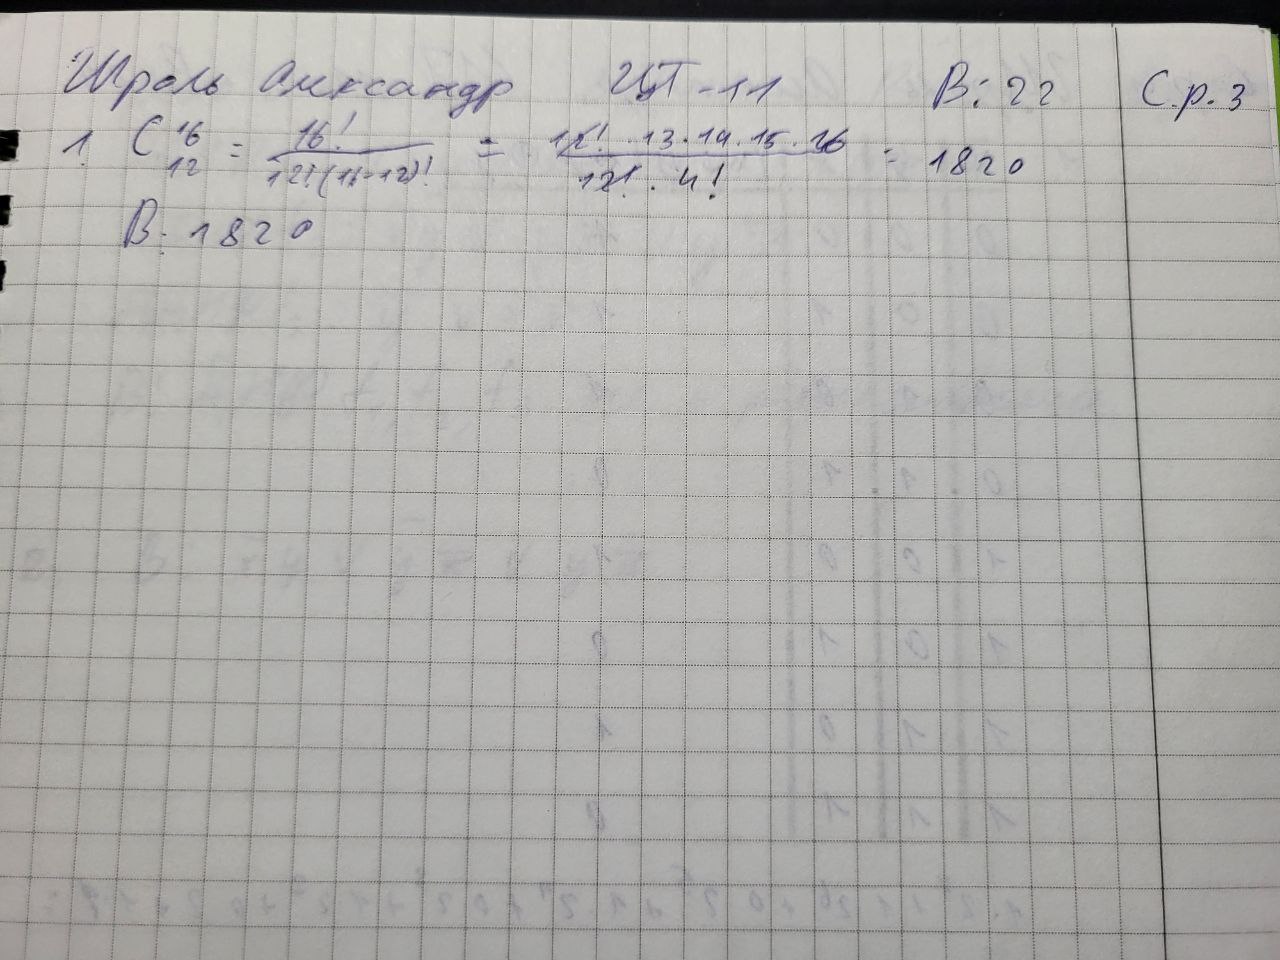 Шроль Олександр ЦТ-11 В: 22 С.р. 3
1. C 16 12 = 16! / 12!(16-12)! = 12! · 13 · 14 · 15 · 16 / 12! · 4! = 1820
В: 1820